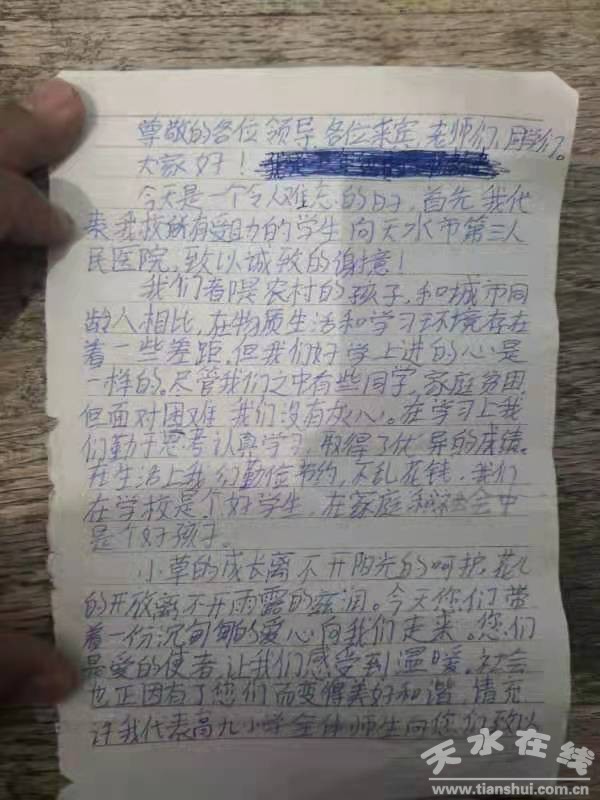 尊敬的各位领导,各位来宾,老师们,同学们。
大家好!
今天是一个令人难忘的日子,首先,我代
表我校所有受助的学生向天水市第三人
民医院,致以诚致的谢意!
我们都是农村的孩子,和城市同
龄人相比,在物质生活和学习环境存在
着一些差距,但我们好学上进的心是
一样的。尽管我们之中有些同学,家庭贫困,
但面对困难,我们没有灰心。在学习上我
们勤于思考认真学习,取得了优异的成绩。
在生活上我们勤俭节约,不乱花钱,我们
在学校是个好学生,在家庭和社会中
是个好孩子。
小草的成长离不开阳光的呵护,花儿
的开放离不开雨露的滋润。今天您们带
着一份沉甸甸的爱心向我们走来。您们
是爱的使者,让我们感受到温暖。社会
也正因有了您们而变得美好和谐,请允
许我代表高九小学全体师生向您们致以
天水在线
www.tianshui.com.cn